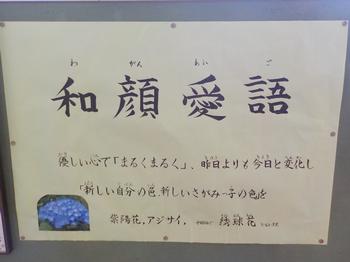 わがんあいご
和顔愛語
優しい心で「まるくまるく」、昨日よりも今日と変化し
「新しい自分の色、新しいさがみっ子の色を
紫陽花,アジサイ,